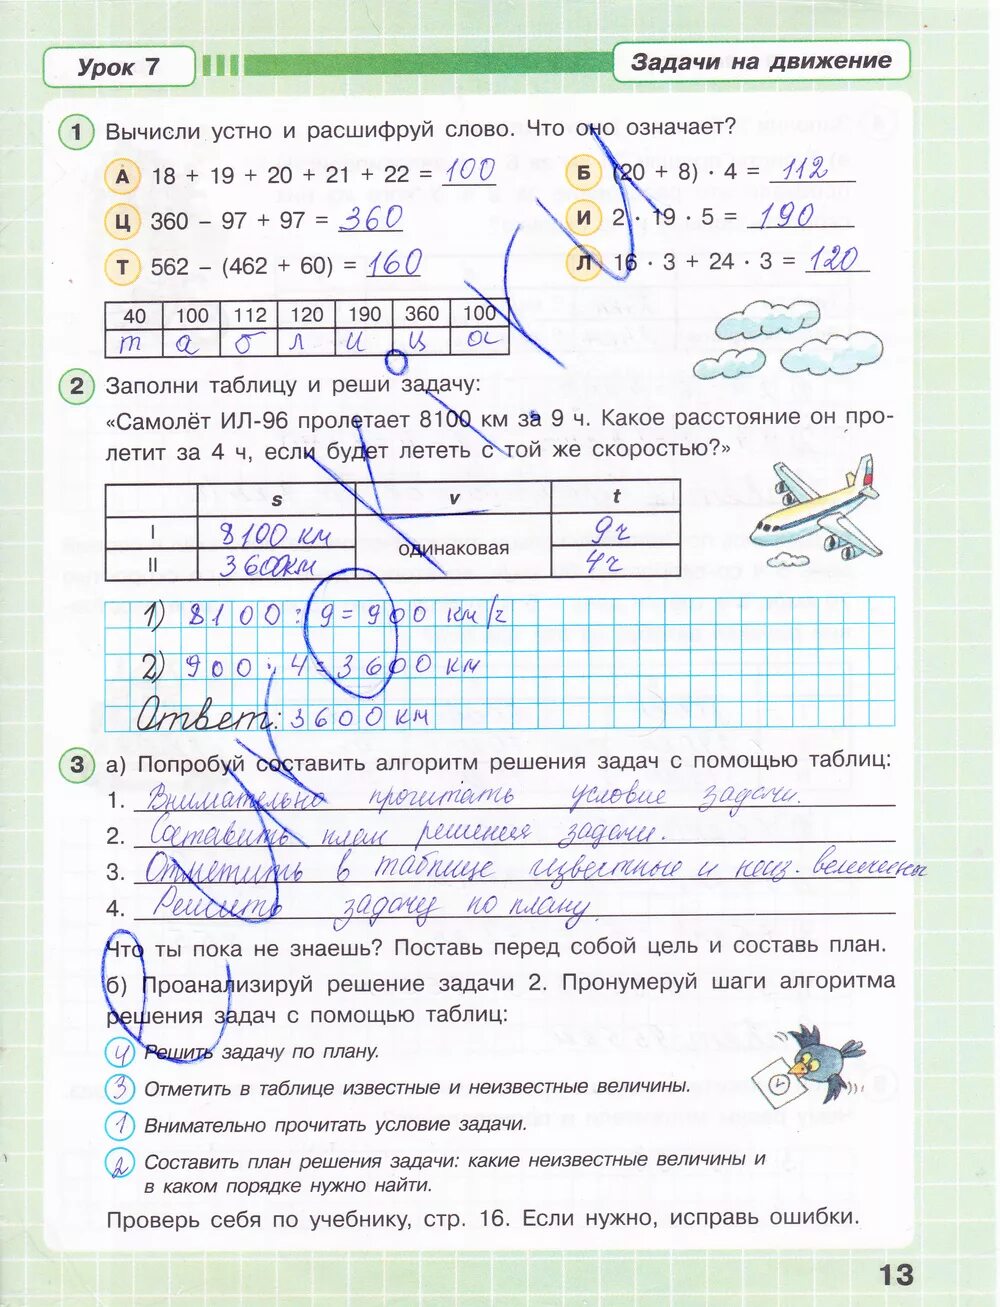 Урок 7
Задачи на движение
1 Вычисли устно и расшифруй слово. Что оно означает?
А 18 + 19 + 20 + 21 + 22 = 100
Б (20 + 8) · 4 = 112
Ц 360 – 97 + 97 = 360
И 2 · 19 · 5 = 190
Т 562 – (462 + 60) = 160
Л 16 · 3 + 24 · 3 = 120
40 100 112 120 190 360 100
т а б л и ц а
2 Заполни таблицу и реши задачу:
«Самолёт ИЛ-96 пролетает 8100 км за 9 ч. Какое расстояние он про-
летит за 4 ч, если будет лететь с той же скоростью?»
s v t
I 8100 км 9ч
одинаковая
II 3600км 4ч
1) 8100 : 9 = 900 км/ч
2) 900 · 4 = 3600 км
Ответ: 3600 км
3 а) Попробуй составить алгоритм решения задач с помощью таблиц:
1. Внимательно прочитать условие задачи.
2. Составить план решения задачи.
3. Отметить в таблице известные и неиз. величины
4. Решить задачу по плану.
Что ты пока не знаешь? Поставь перед собой цель и составь план.
б) Проанализируй решение задачи 2. Пронумеруй шаги алгоритма
решения задач с помощью таблиц:
4 Решить задачу по плану.
3 Отметить в таблице известные и неизвестные величины.
1 Внимательно прочитать условие задачи.
2 Составить план решения задачи: какие неизвестные величины и
в каком порядке нужно найти.
Проверь себя по учебнику, стр. 16. Если нужно, исправь ошибки.
13